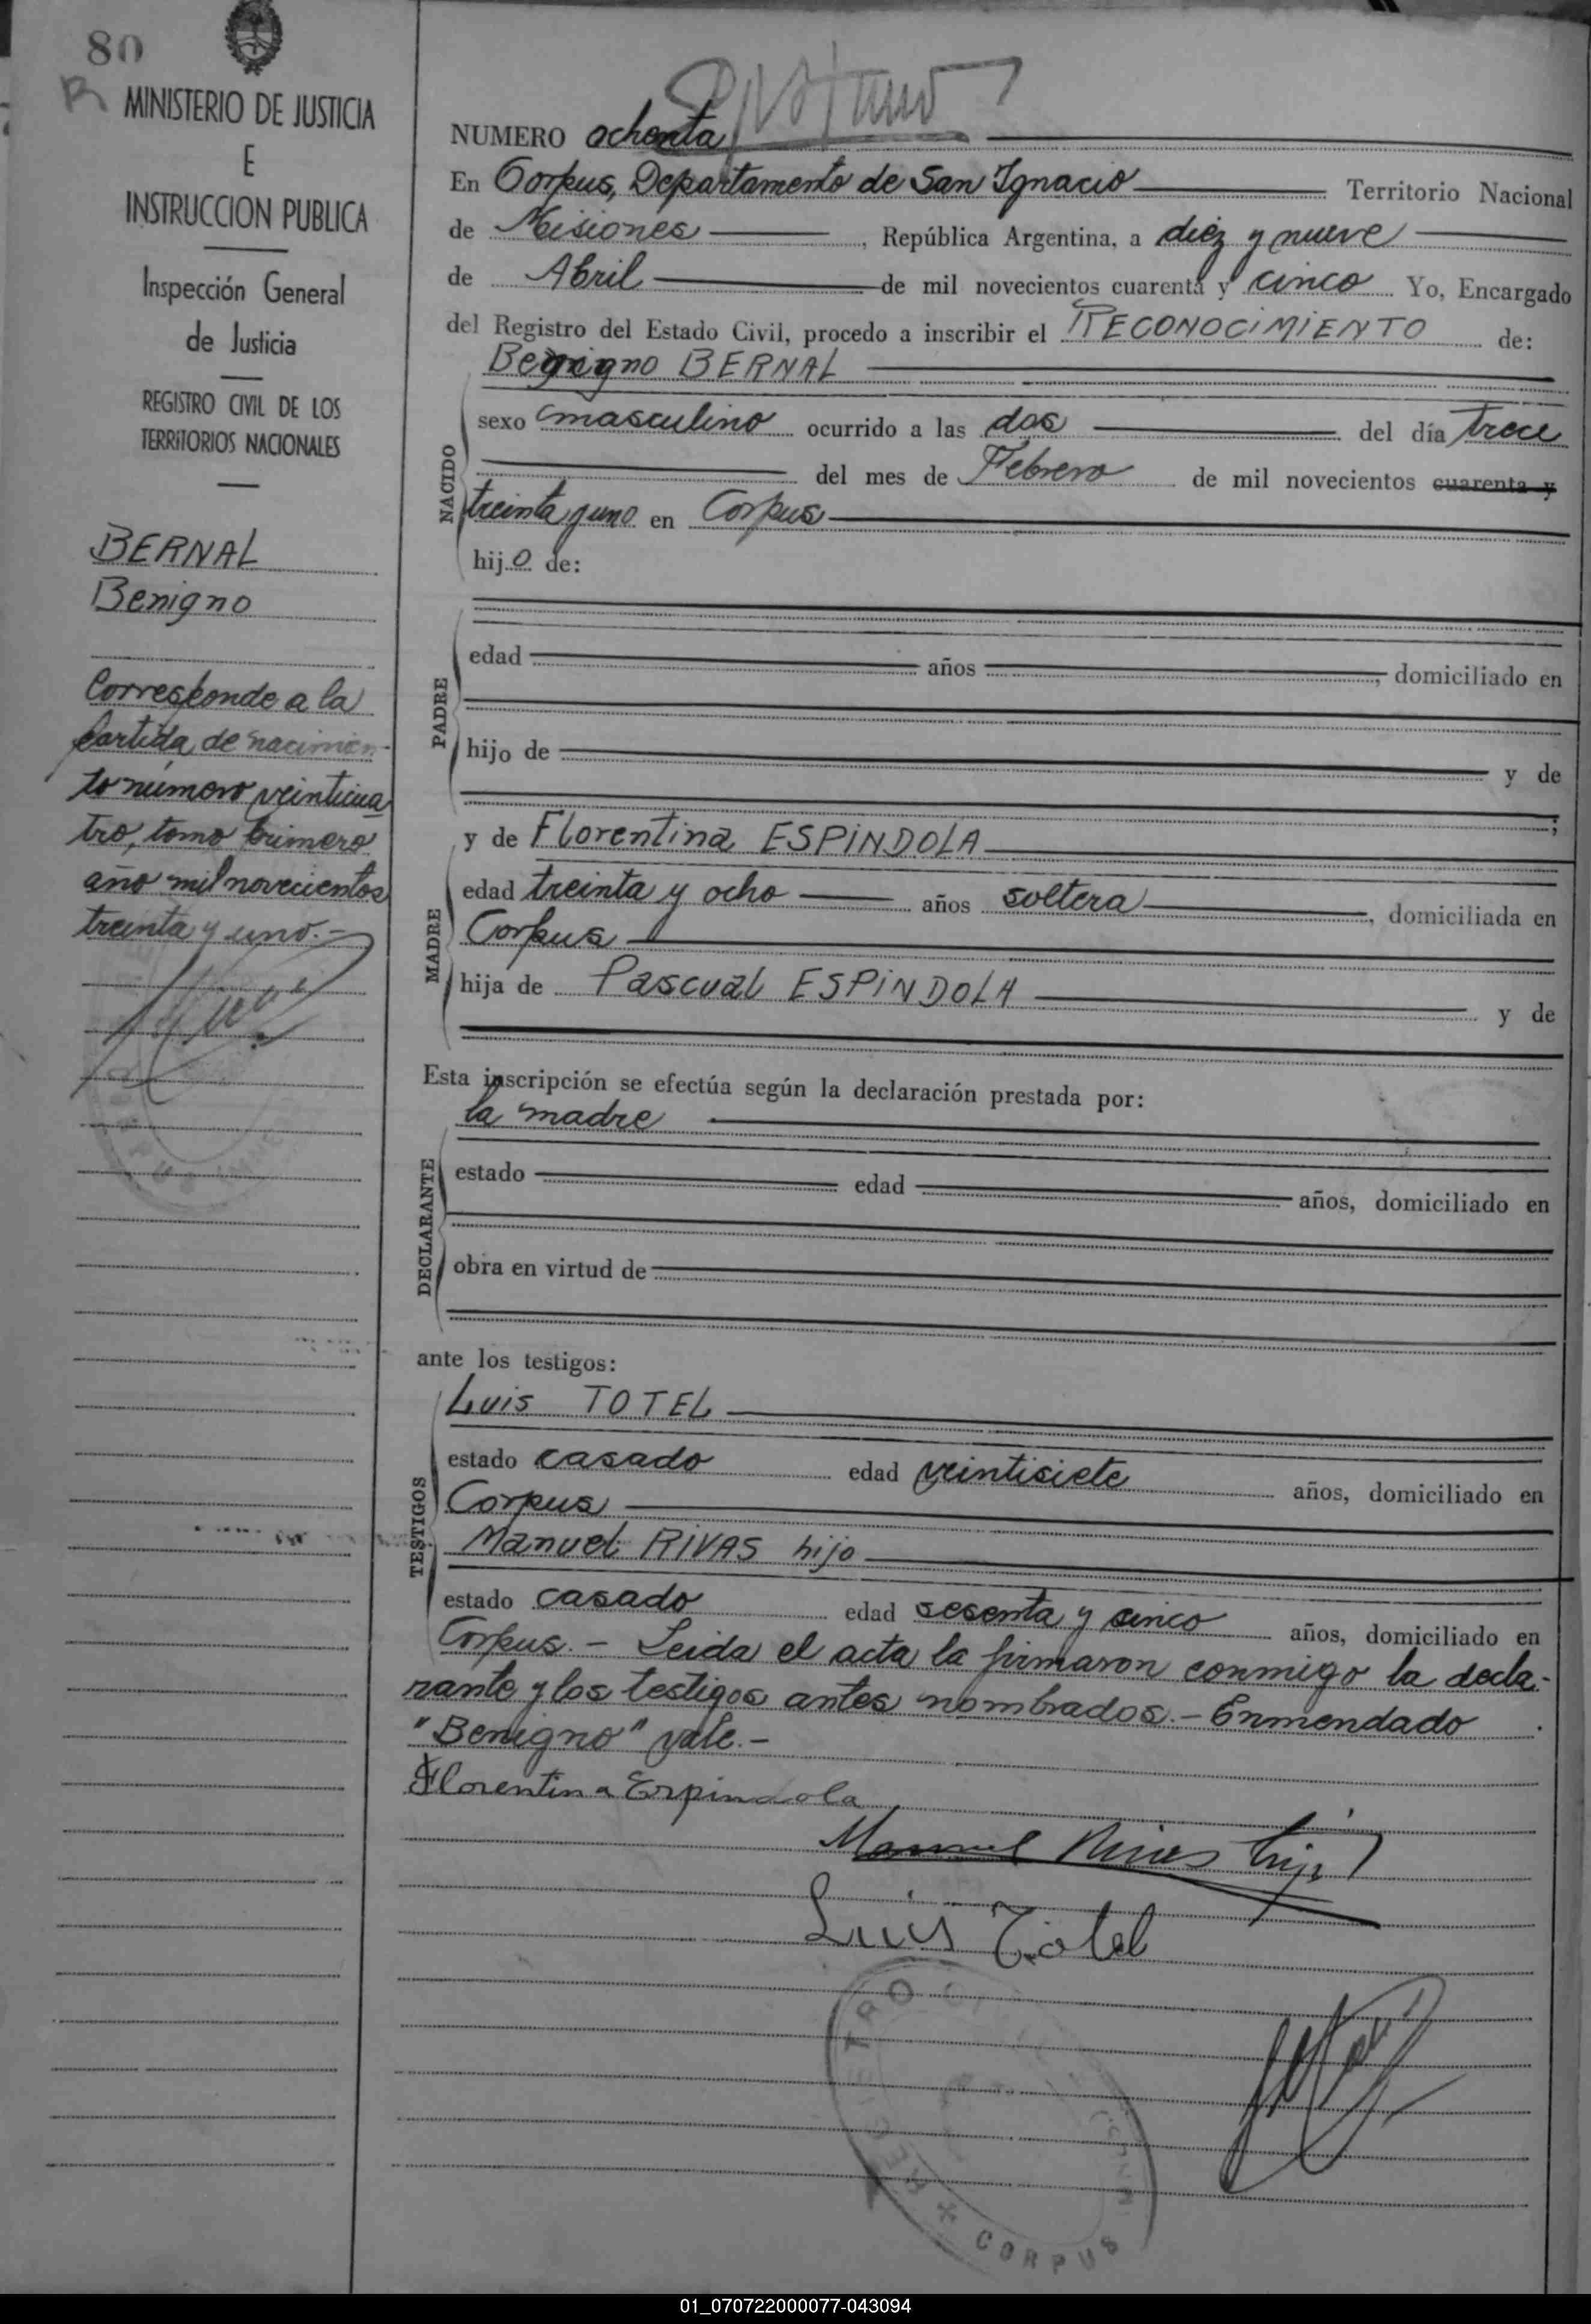 80
R
MINISTERIO DE JUSTICIA
E
INSTRUCCION PUBLICA
Inspección General
de Justicia
REGISTRO CIVIL DE LOS
TERRITORIOS NACIONALES
BERNAL
Benigno
Corresponde a la
partida de nacimien-
to número veinticua
tro, tomo primero
año mil novecientos
treinta y uno.-
NUMERO ochenta
En Corpus, Departamento de San Ignacio Territorio Nacional
de Misiones, República Argentina, a diez y nueve
de Abril de mil novecientos cuarenta y cinco Yo, Encargado
del Registro del Estado Civil, procedo a inscribir el RECONOCIMIENTO de:
Benigno BERNAL
NACIDO
sexo masculino ocurrido a las dos del día trece
del mes de Febrero de mil novecientos cuarenta y
treinta y uno en Corpus
hijo de:
PADRE
edad años, domiciliado en
hijo de y de
;
y de Florentina ESPINDOLA
MADRE
edad treinta y ocho años soltera, domiciliada en
Corpus
hija de Pascual ESPINDOLA y de
Esta inscripción se efectúa según la declaración prestada por:
la madre
DECLARANTE
estado edad años, domiciliado en
obra en virtud de
ante los testigos:
TESTIGOS
Luis TOTEL
estado casado edad veintisiete años, domiciliado en
Corpus
Manuel RIVAS hijo
estado casado edad sesenta y cinco años, domiciliado en
Corpus.- Leida el acta la firmaron conmigo la decla-
rante y los testigos antes nombrados.- Enmendado
"Benigno" vale.-
Florentina Espindola
Manuel Rivas hijo
Luis Totel
REGISTRO
CORPUS
01_070722000077-043094